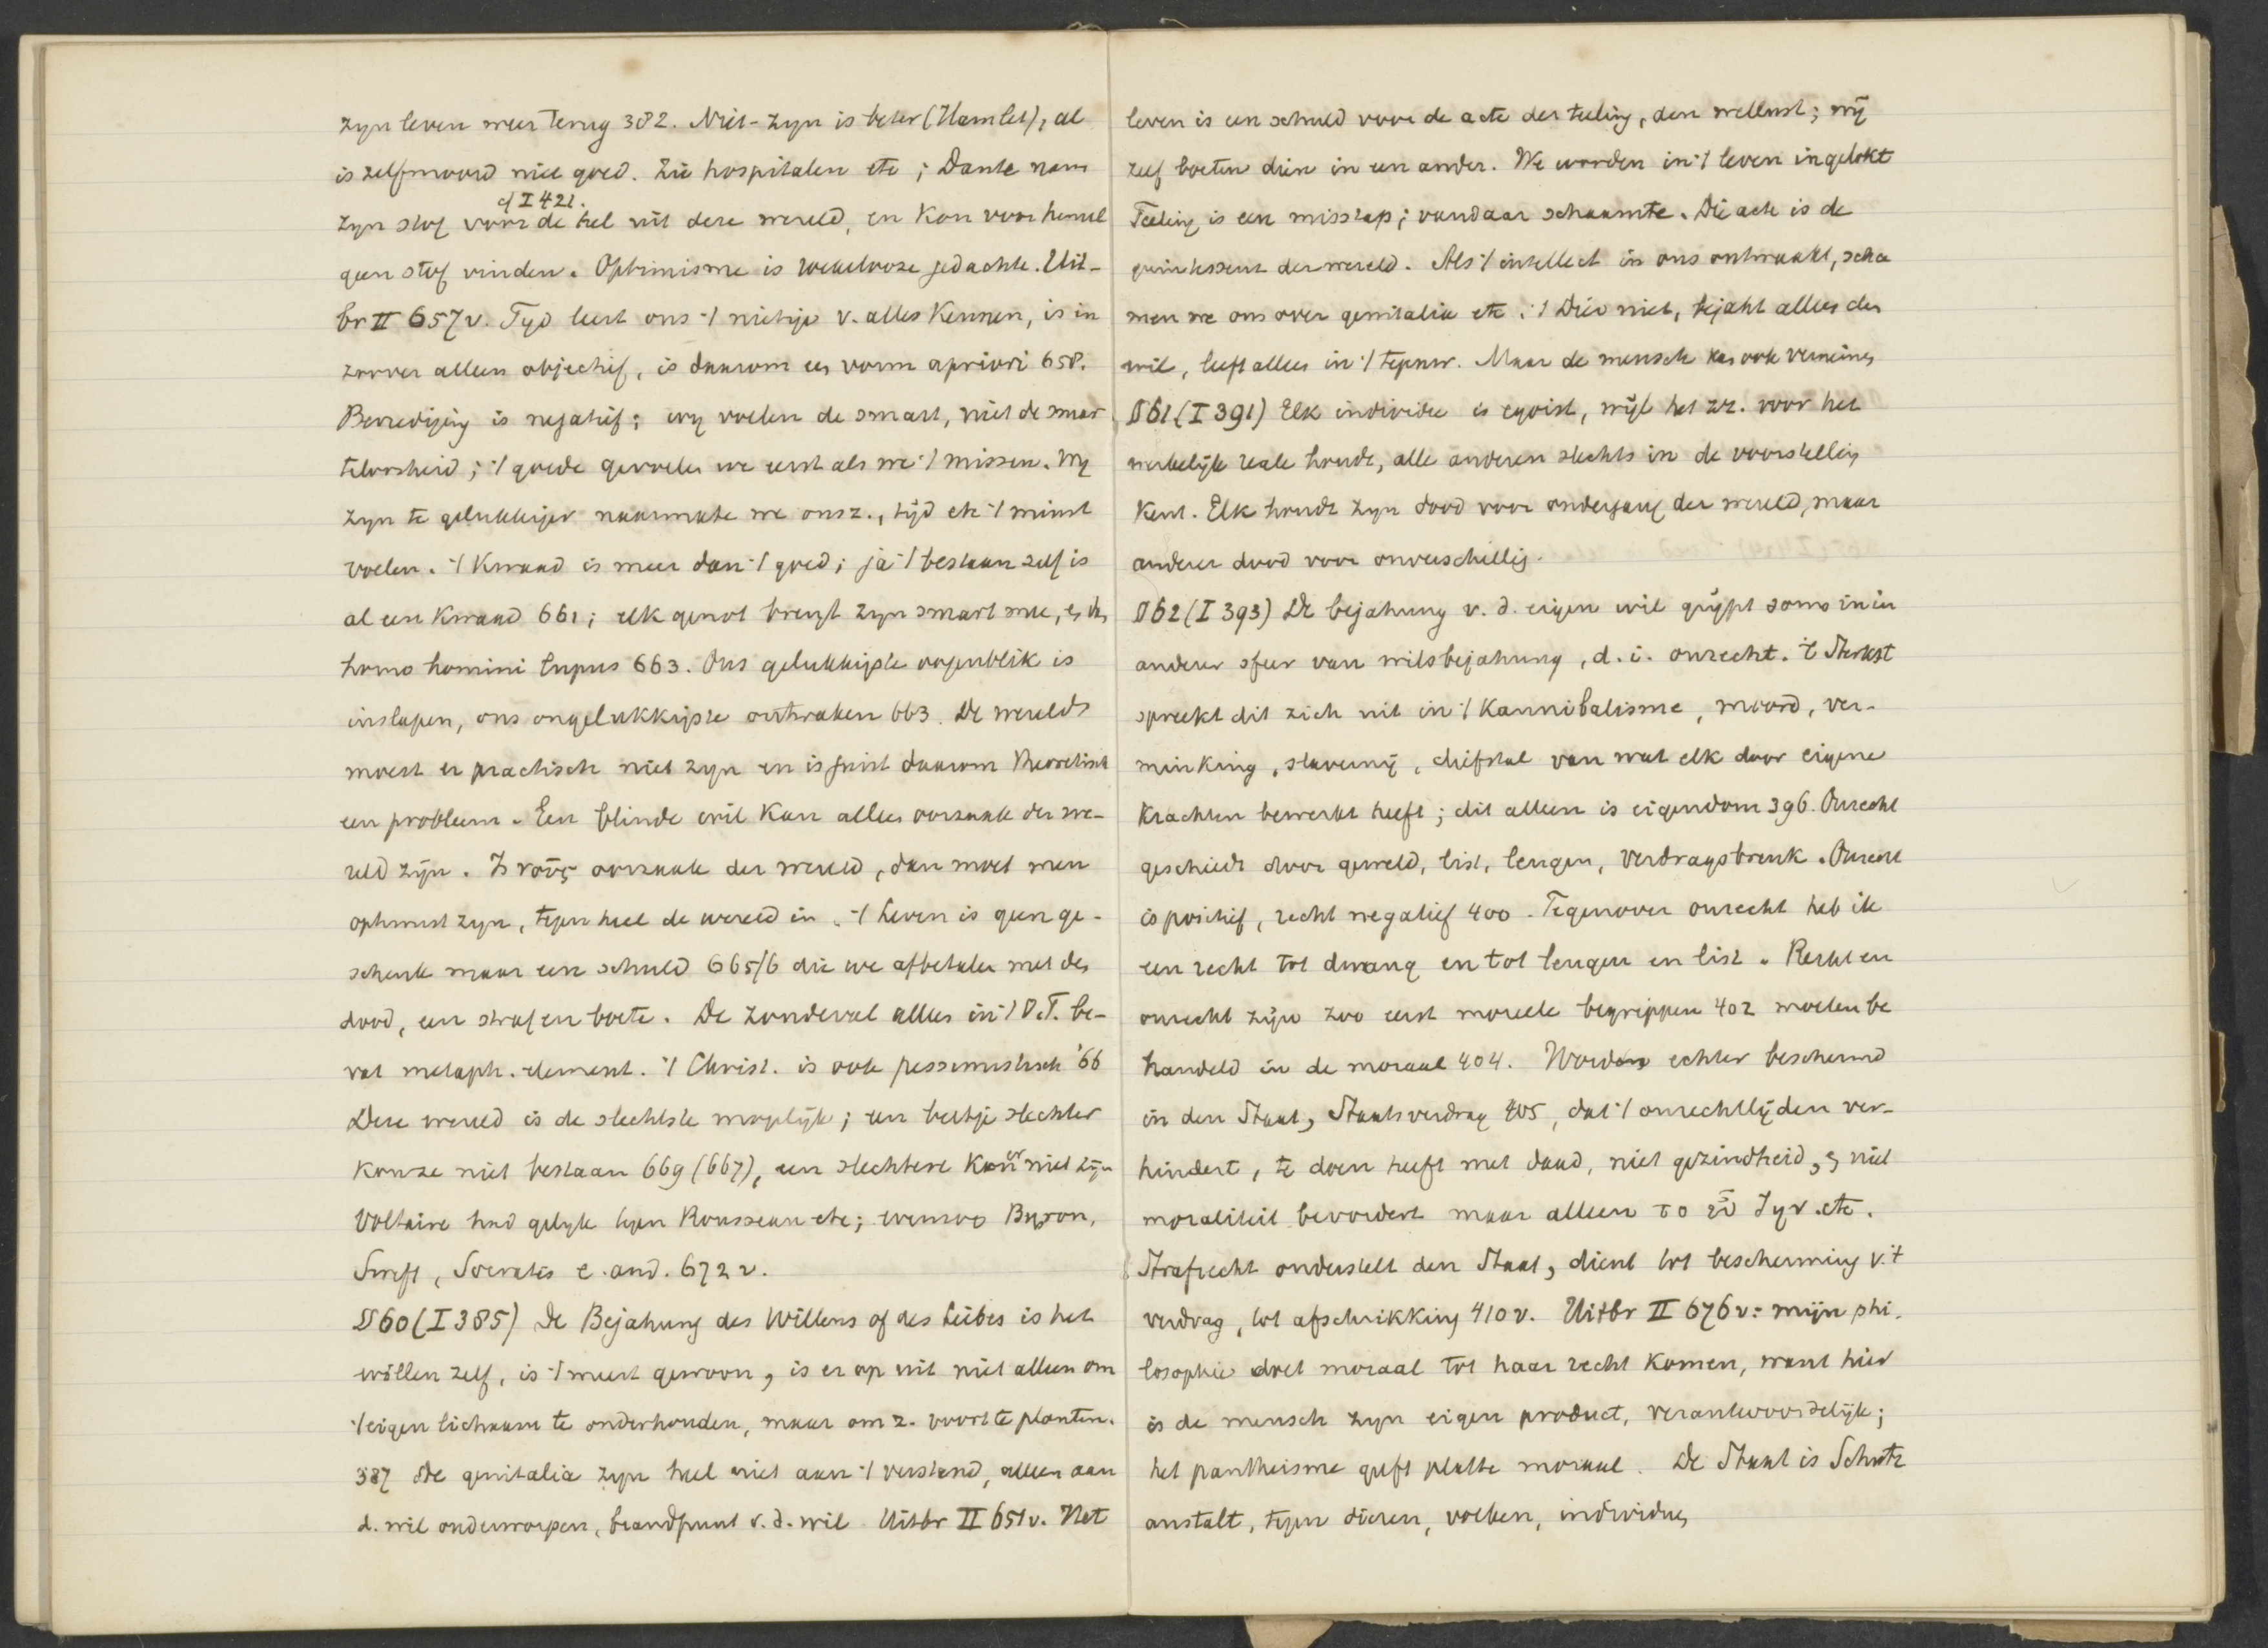 zyn leven weer terug 382. Niet-zyn is beter (Hamlet), al
is zelfmoord niet goed. Zie hospitalen etc; Dante nam
cf I 421.
zyn stof voor de hel uit deze wereld, en kon voor hemel
geen stof vinden. Optimisme is roekelooze gedachte. Uit-
br II 657 v. Tyd leert ons 't nietige v. alles kennen, is in
zoover alleen objectief, is daarom een vorm apriori 658.
Bevrediging is negatief; wy voelen de smart, niet de smar
teloosheid; 't goede gevoelen we eerst als we 't missen. Wy
zyn te gelukkiger naarmate we ons z., tijd etc 't minst
voelen. 't Kwaad is meer dan 't goed; ja 't bestaan zelf is
al een kwaad 661; elk genot brengt zyn smart mee, en
homo homini lupus 663. Ons gelukkigste oogenblik is
inslapen, ons ongelukkigste ontwaken 663. De wereld
moest er practisch niet zyn en is juist daarom theoretisch
een probleem. Een blinde wil kan alleen oorzaak der we-
reld zijn. Is νοῦς oorzaak der wereld, dan moet men
optimist zyn, tegen heel de wereld in. 't Leven is geen ge-
schenk maar een schuld 665/6 die we afbetalen met den
dood, een straf en boete. De zondeval alleen in 't O.T. be-
vat metaph. element. 't Christ. is ook pessimistisch '66
Deze wereld is de slechtste mogelijk; een beetje slechter
kon ze niet bestaan 669 (667), een slechtere kon er niet zijn
Voltaire had gelyk tegen Rousseau etc; evenzoo Byron,
Swift, Socrates e. and. 672 v.
§ 60 (I 385) De Bejahung des Willens of des Leibes is het
willen zelf, is 't meest gewoon, is er op uit niet alleen om
't eigen lichaam te onderhouden, maar om z. voort te planten.
387 De genitalia zyn heel niet aan 't verstand, alleen aan
d. wil onderworpen, brandpunt v. d. wil Uitbr II 651 v. Het
leven is een schuld voor de acte der teeling, den wellust; wij
zelf boeten dien in een ander. We worden in 't leven ingelokt
Teeling is een misstap; vandaar schaamte. Die acte is de
quintessent der wereld. Als 't intellect in ons ontwaakt, scha
men we ons over genitalia etc. 't Dier niet, bejaht alleen den
wil, leeft alleen in 't tegenw. Maar de mensch kan ook verneinen
§ 61 (I 391) Elk individu is egoist, wijl het zz. voor het
werkelijk reale houdt, alle anderen slechts in de voorstelling
kent. Elk houdt zyn dood voor ondergang der wereld, maar
anderer dood voor onverschillig.
§ 62 (I 393) De bejahung v. d. eigen wil grypt soms in in
anderer sfeer van wilsbejahung, d. i. onrecht. 't Sterkst
spreekt dit zich uit in 't Kannibalisme, moord, ver-
minking, slavernij, diefstal van wat elk door eigene
krachten bewerkt heeft; dit alleen is eigendom 396. Onrecht
geschiedt door geweld, list, leugen, verdragsbreuk. Onrecht
is positief, recht negatief 400. Tegenover onrecht heb ik
een recht tot dwang en tot leugen en list. Recht en
onrecht zijn zoo eerst moreele begrippen 402 moeten be
handeld in de moraal 404. Worden echter beschermd
in den Staat, Staatsverdrag 405, dat 't onrechtlijden ver-
hindert, te doen heeft met daad, niet gezindheid, en niet
moraliteit bevordert maar alleen το εὖ ζῆν. etc.
Strafrecht onderstelt den Staat, dient tot bescherming v. 't
verdrag, tot afschrikking 410 v. Uitbr II 676 v: mijn phi-
losophie doet moraal tot haar recht komen, want hier
is de mensch zyn eigen product, verantwoordelijk;
het pantheisme geeft platte moraal. De Staat is Schutz
anstalt, tegen dieren, volken, individuen